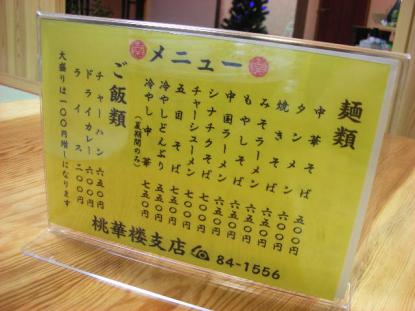 メニュー
麺類
中華そば 五〇〇円
タンメン 六〇〇円
焼きそば 六〇〇円
みそラーメン 六五〇円
もやしそば 六五〇円
中国ラーメン 六五〇円
シナチクそば 七〇〇円
チャーシューメン 七〇〇円
五目そば 七五〇円
冷やしどんぶり 七五〇円
冷やし中華 七五〇円
(夏期間のみ)
ご飯類
チャーハン 六五〇円
ドライカレー 六五〇円
ライス 二〇〇円
大盛りは一〇〇円増しになります
桃華楼支店 ☎ 84-1556